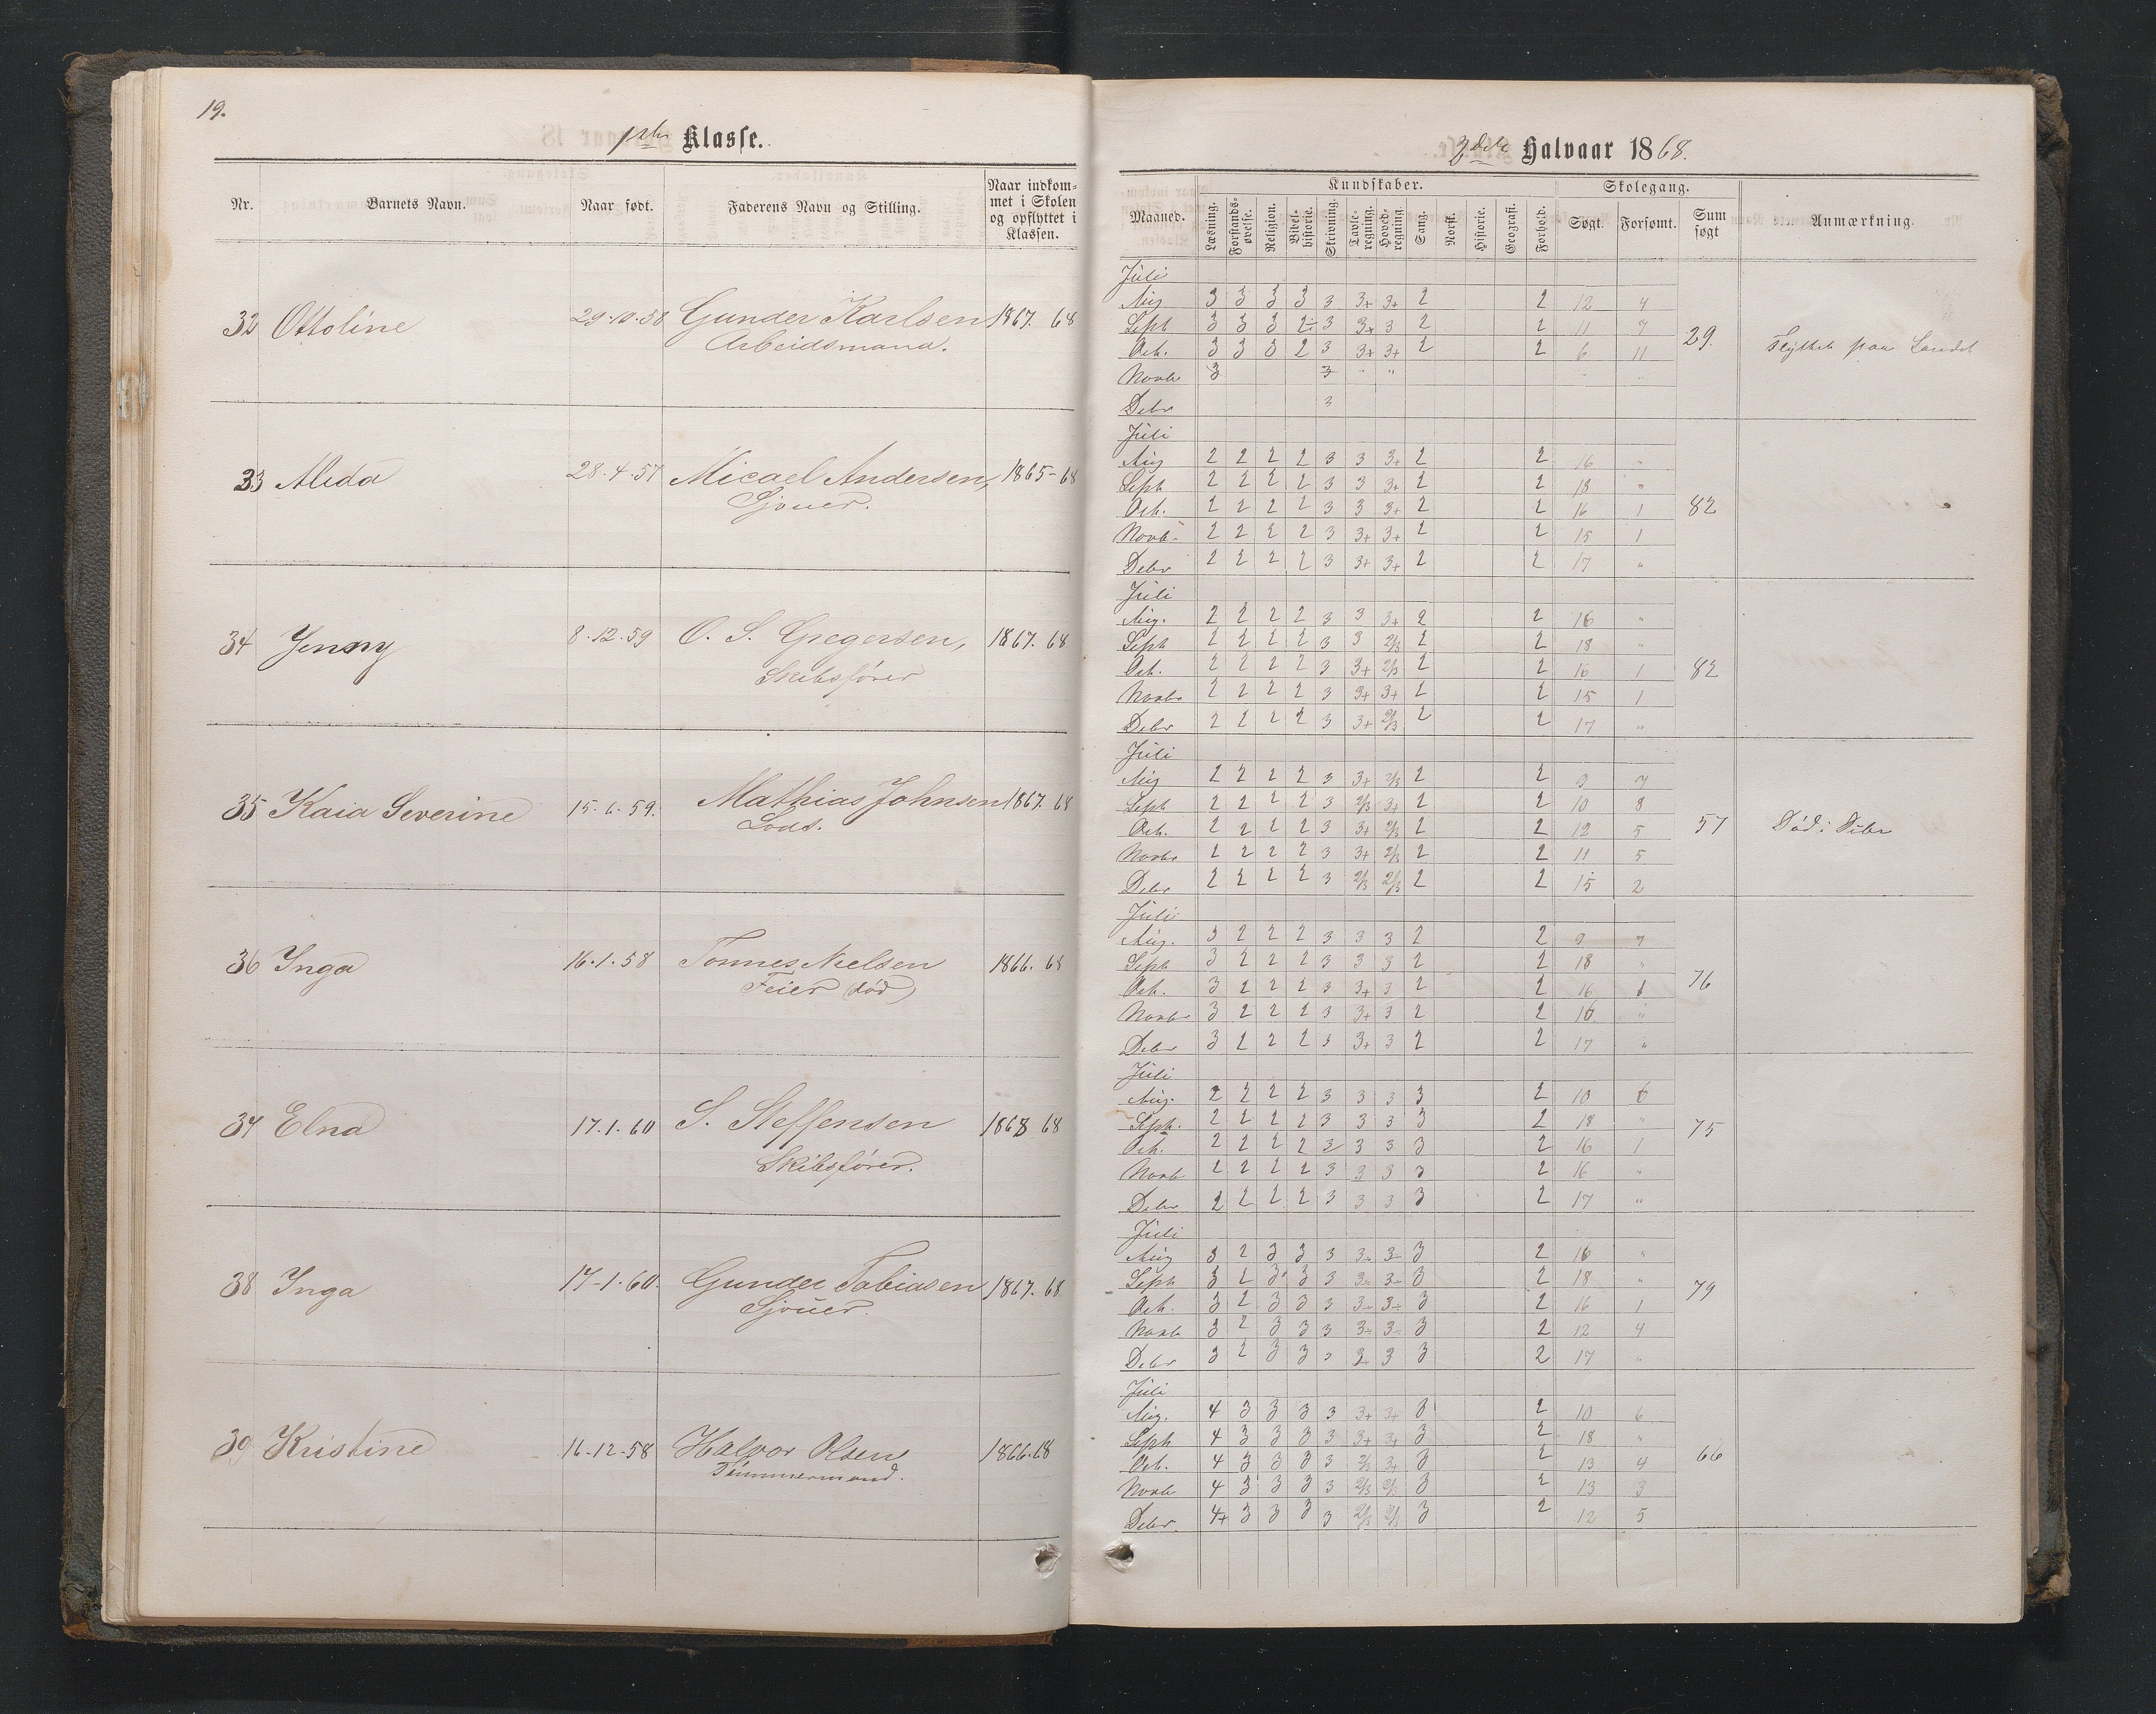 19.
1ste Klasse.
Nr. Barnets Navn. Naar født. Faderens Navn og Stilling. Naar indkom-
met i Skolen
og opflyttet i
Klassen.
32 Ottoline 29.10.58 Gunder Karlsen 1867. 68
Arbeidsmand.
33 Alida 28.4.57 Micael Andersen, 1865-68
Sjouer.
34 Jenny 8.12.59 O. S. Gregersen, 1867. 68
Skibsfører
35 Kaia Severine 15.6.59. Mathias Johnsen 1867. 68
Lods.
36 Inga 16.1.58 Tønnes Nielsen 1866. 68
Feier (død)
37 Elna 17.1.60 S. Steffensen 1868 68
Skibsfører.
38 Inga 17-1.60. Gunder Tobiasen 1867. 68
Sjouer.
39 Kristine 16-12-58 Halvor Olsen 1866.68
Tømmermand.
Halvaar 1868.
Maaned. Kundskaber. Skolegang. Sum søgt Anmærkning.
Læsning. Forstands-øvelse. Religion. Bibel-historie. Skrivning. Tavle-regning. Hoved-regning. Sang. Norsk. Historie. Geografi. Forhold. Søgt. Forsømt.
Juli
Aug 3 3 3 3 3 3+ 3+ 2 2 12 4
Septb 3 3 3 2÷ 3 3+ 3 2 2 11 7
Octb. 3 3 3 2 3 3+ 3+ 2 2 6 11
29. Flyttet paa Landet
Novbr 3 3 " " " "
Debr 3
Juli
Aug 2 2 2 2 3 3 3+ 2 2 16 "
Septb 2 2 2 2 3 3 3+ 2 2 18 "
Octb. 2 2 2 2 3 3 3+ 2 2 16 1
82
Novb. 2 2 2 2 3 3+ 3+ 2 2 15 1
Debr 2 2 2 2 3 3+ 3+ 2 2 17 "
Juli
Aug. 2 2 2 2 3 3 3+ 2 2 16 "
Septb 2 2 2 2 3 3 2/3 2 2 18 "
Octb. 2 2 2 2 3 3+ 2/3 2 2 16 1
82
Novbr 2 2 2 2 3 3+ 3+ 2 2 15 1
Debr 2 2 2 2 3 3+ 2/3 2 2 17 "
Juli
Aug 2 2 2 2 3 3+ 2/3 2 2 9 7
Septb 2 2 2 2 3 2/3 3+ 2 2 10 8
Octb. 2 2 2 2 3 3+ 2/3 2 2 12 5
57 Død i Debr
Novbr 2 2 2 2 3 3+ 2/3 2 2 11 5
Debr 2 2 2 2 3 2/3 2/3 2 2 15 2
Juli
Aug. 3 2 2 2 3 3 3 2 2 9 7
Septb 3 2 2 2 3 3 3 2 2 18 "
Octb. 3 2 2 2 3 3+ 3 2 2 16 1
76
Novbr 3 2 2 2 3 3+ 3 2 2 16 "
Debr 3 2 2 2 3 3+ 3 2 2 17 "
Juli
Aug. 2 2 2 2 3 3 3 3 2 10 6
Septb. 2 2 2 2 3 3 3 3 2 18 "
75
Octb. 2 2 2 2 3 3 3 3 2 16 1
Novb 2 2 2 2 3 3 3 3 2 16 "
Debr 2 2 2 2 3 3 3 3 2 17 "
Juli
Aug 3 2 3 3 3 3÷ 3÷ 3 2 16 "
Septb 3 2 3 3 3 3÷ 3÷ 3 2 18 "
79
Octb. 3 2 3 3 3 3÷ 3÷ 3 2 16 1
Novb 3 2 3 3 3 3÷ 3÷ 3 2 12 4
Debr 3 2 3 3 3 3 3 3 2 17 "
Juli
Aug. 4 3 3 3 3 3+ 3+ 3 2 10 6
Septb 4 3 3 3 3 3+ 3+ 3 2 18 "
Octb. 4 3 3 3 3 2/3 3+ 3 2 13 4
66
Novb 4 3 3 3 3 2/3 2/3 3 2 13 3
Debr. 4+ 3 3 3 3 2/3 2/3 3 2 12 5